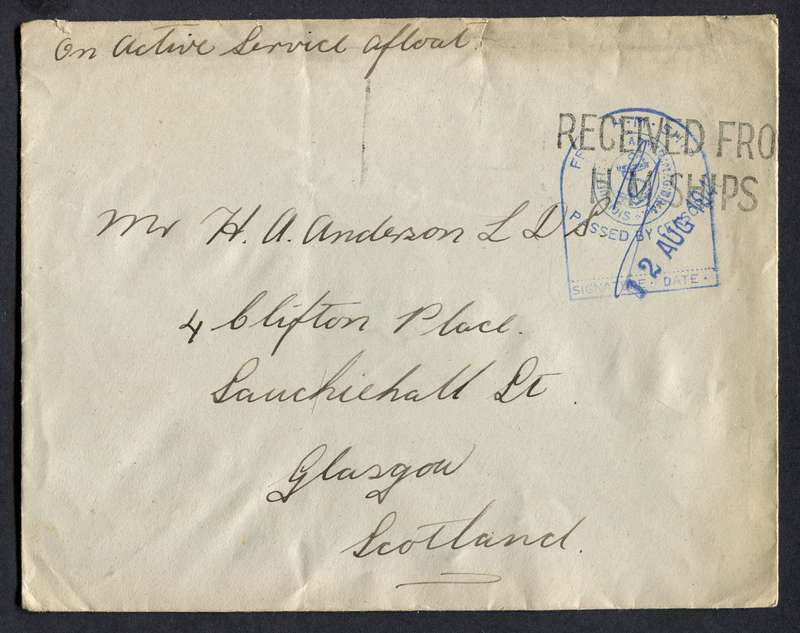 On Active Service Afloat.
RECEIVED FRO
H.M. SHIPS
PASSED BY CENSOR
12 AUG
SIGNATURE · DATE ·
Mr H. A. Anderson L D S
4 Clifton Place.
Sauchiehall St.
Glasgow
Scotland.